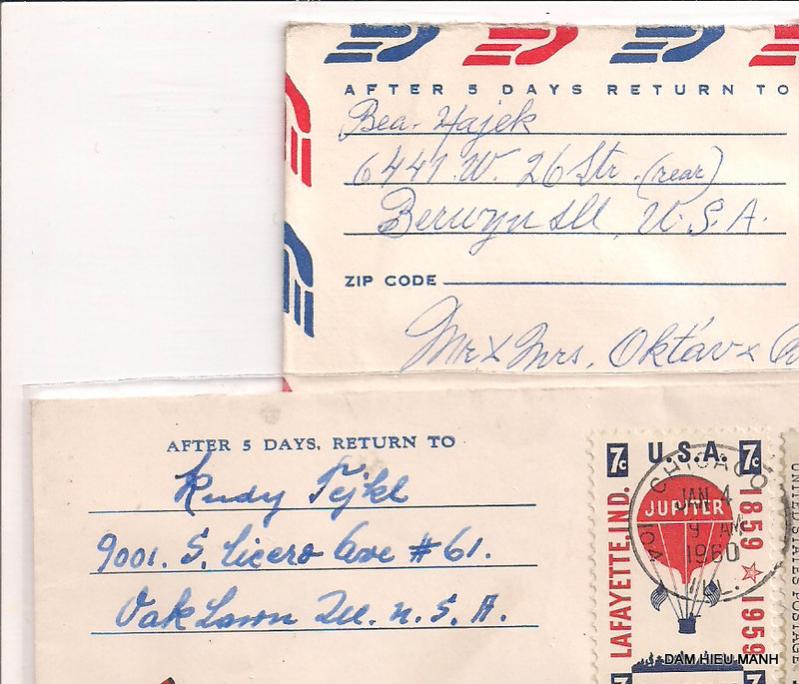 AFTER 5 DAYS RETURN TO
Bea. Hajek
6441 W. 26 Str. (rear)
Berwyn Ill, U.S.A.
ZIP CODE
Mr & Mrs. Oktav
AFTER 5 DAYS, RETURN TO
Rudy Tejkl
9001. S. Cicero Ave #61.
Oak Lawn Ill. U.S.A.
7c U.S.A. 7c
CHICAGO
JAN 4
9 AM
1960
ILL.
JUPITER
LAFAYETTE, IND.
1859 1959
UNITED STATES POSTAGE
DAM HIEU MANH